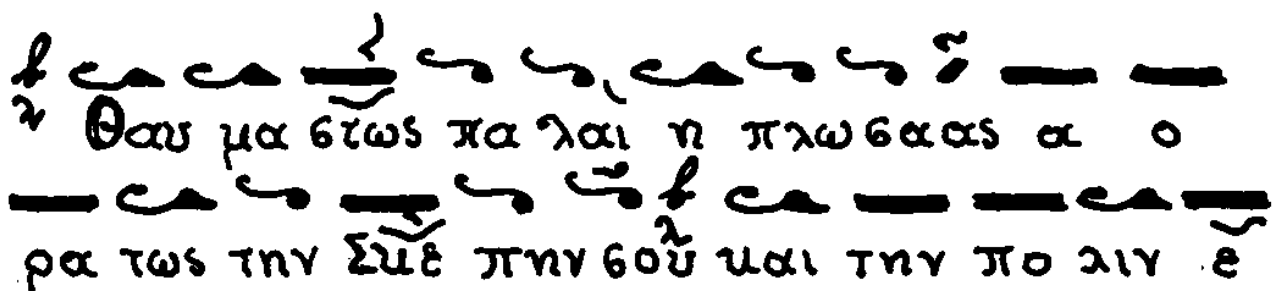 Θαυ μα στως πα λαι η πλω σα ας α ο
ρα τως την Σκε πην σου και την πο λιν ε